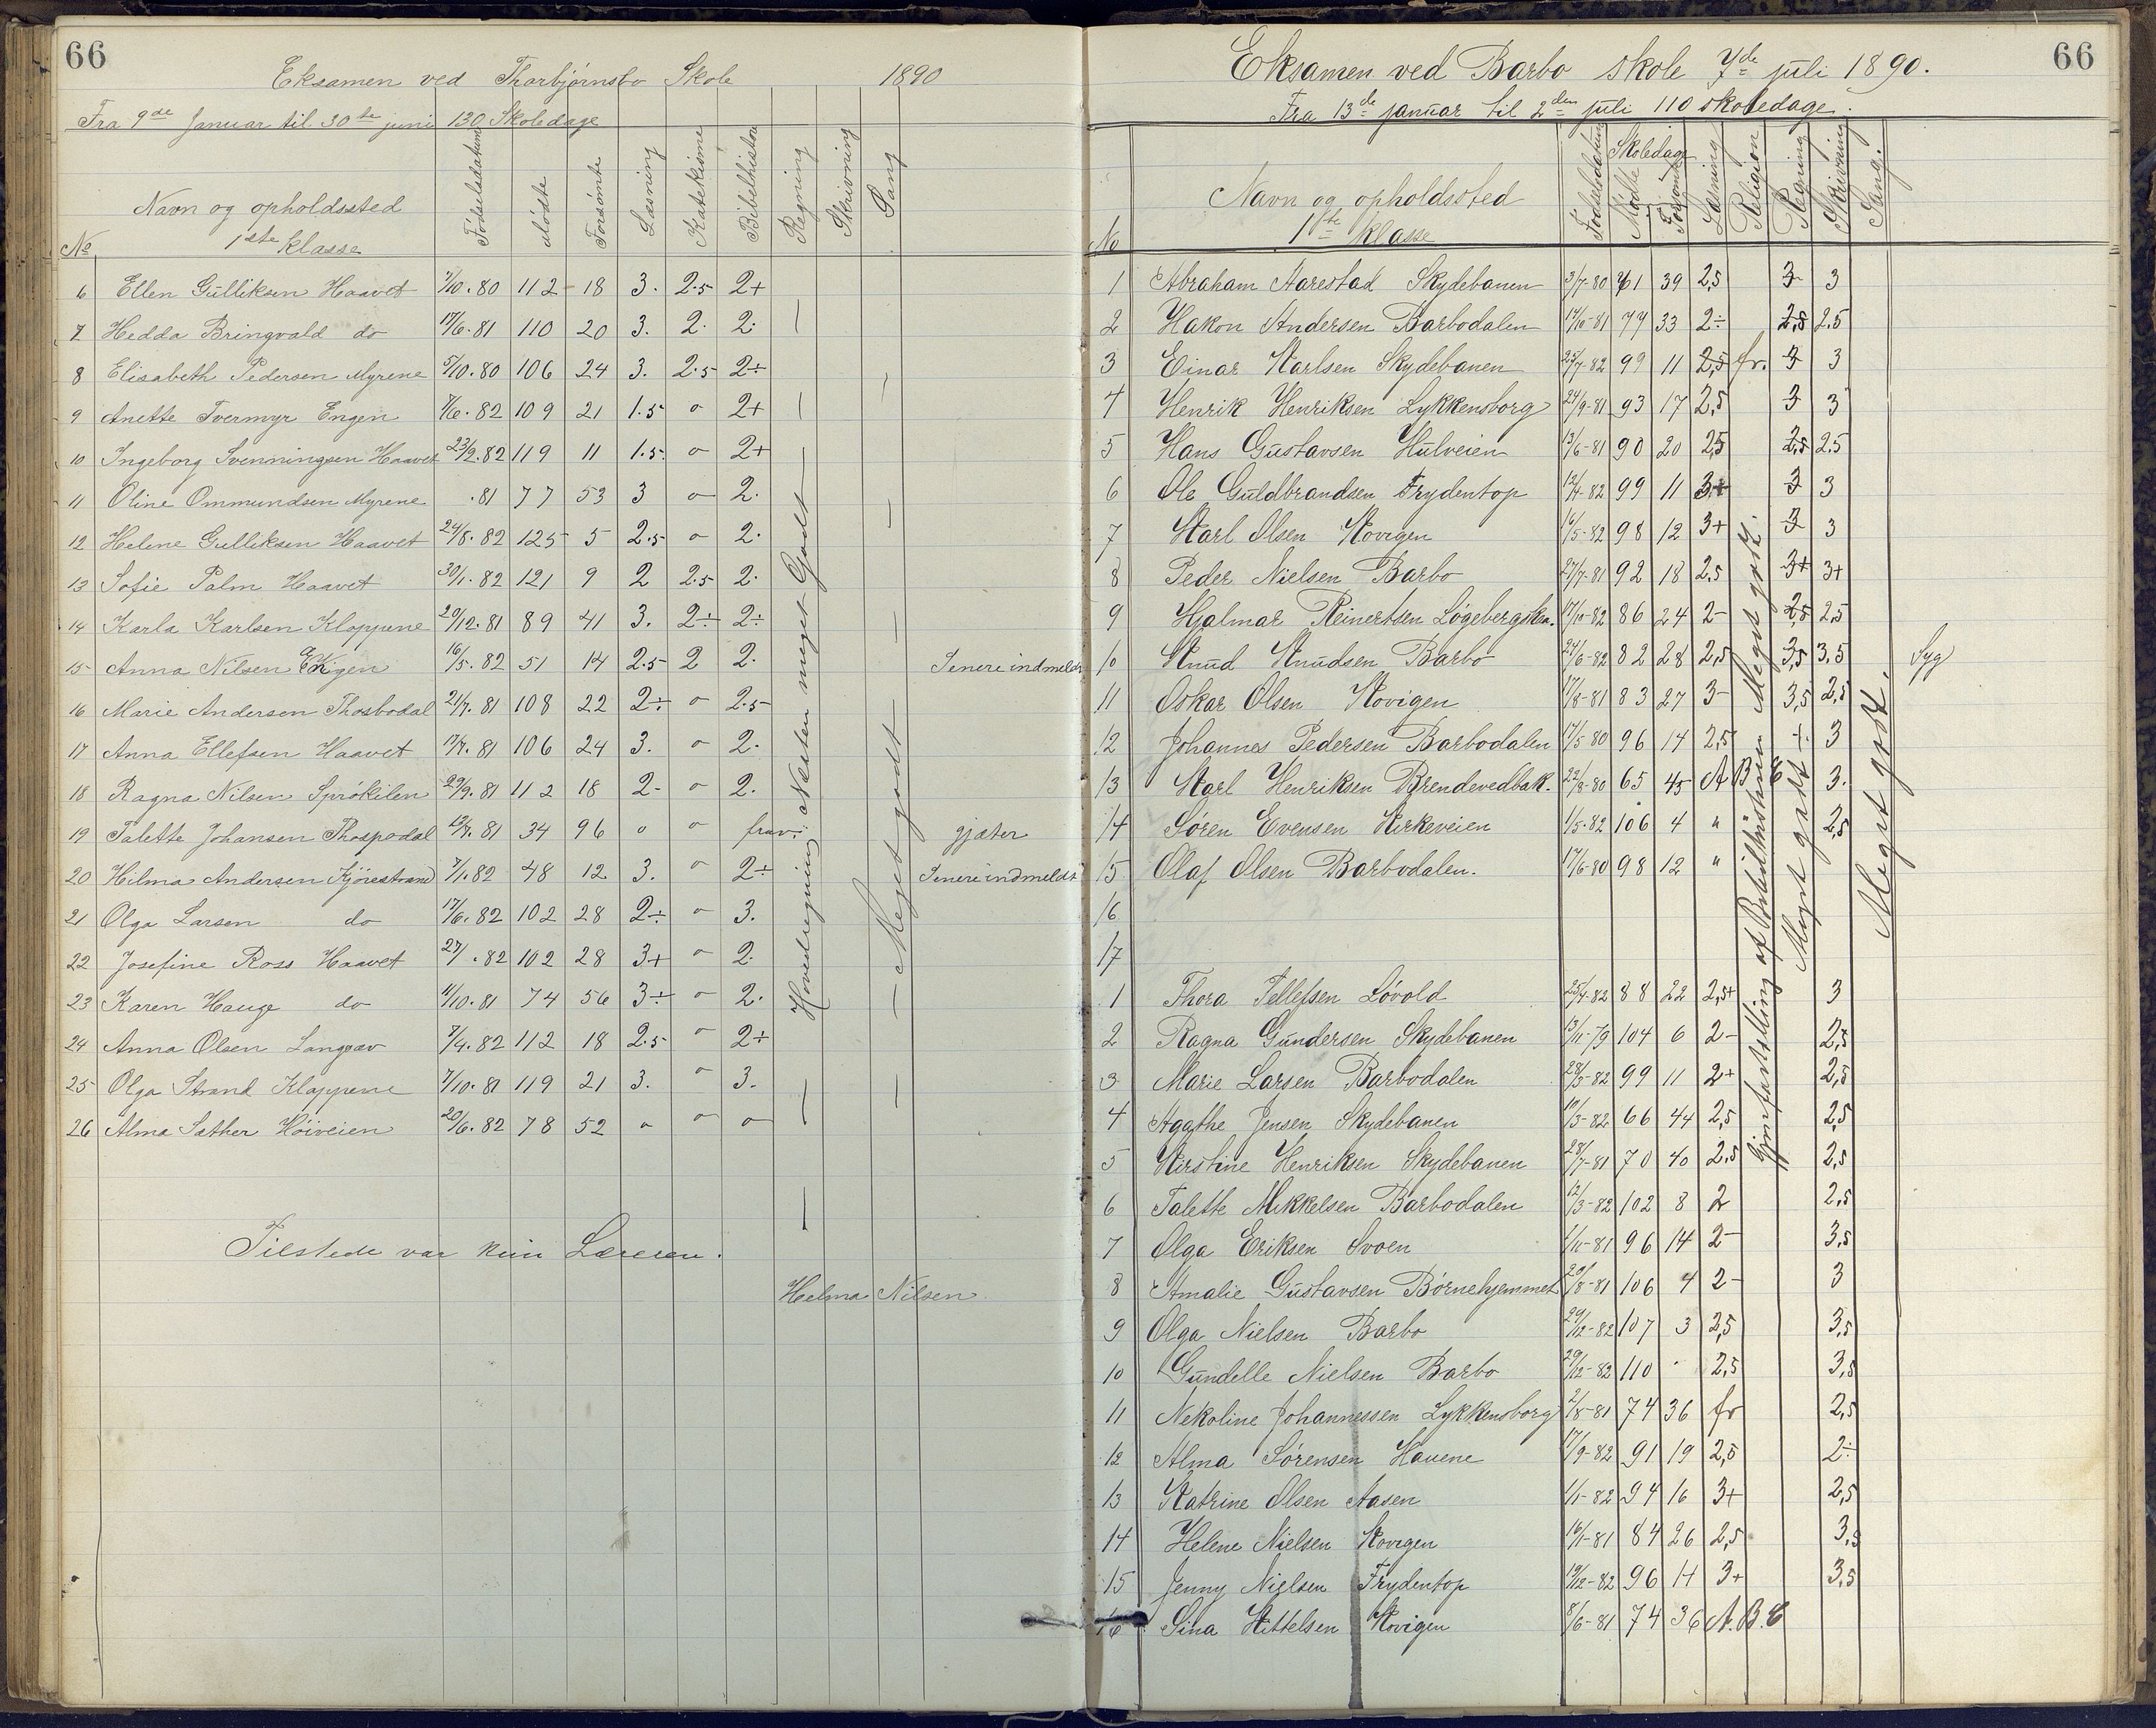 66
Eksamen ved Thorbjørnsbo Skole 1890
Fra 9de Januar til 30te juni 130 Skoledage
No Navn og opholdssted 1ste klasse Fødselsdatum Mødte Forsømte Læsning Katekisme Bibelhistorie Regning Skrivning Sang
6 Ellen Gulliksen Haavet 7/10.80 112 18 3. 2.5 2+
7 Hedda Bringvald do 17/6.81 110 20 3. 2. 2.
8 Elisabeth Pedersen Myrene 5/10.80 106 24 3. 2.5 2÷
9 Anette Tvermyr Engen 7/6.82 109 21 1.5 o 2+
10 Ingeborg Svenningsen Haavet 23/2.82 119 11 1.5 o 2+
11 Oline Ommundsen Myrene .81 77 53 3 o 2.
12 Helene Gulliksen Haavet 24/8.82 125 5 2.5 o 2.
13 Sofie Palm Haavet 30/1.82 121 9 2 2.5 2.
14 Karla Karlsen Kloppene 20/12.81 89 41 3. 2÷ 2÷
15 Anna Nilsen 16/5.82 51 14 2.5 2 2. Senere indmeldt
16 Marie Andersen Thosbodal 21/7.81 108 22 2÷ o 2.5
17 Anna Ellefsen Haavet 17/7.81 106 24 3. o 2.
18 Ragna Nilsen Sprøkilen 29/9.81 112 18 2- o 2.
19 Talette Johansen Thospodal 12/8.81 34 96 o o frav. gjæter
20 Hilma Andersen Kjørestrand 7/1.82 48 12 3. o 2÷ Senere indmeldt
21 Olga Larsen do 17/6.82 102 28 2÷ o 3.
22 Josefine Ross Haavet 27/ .82 102 28 3+ o 2.
23 Karen Hauge do 11/10.81 74 56 3÷ o 2.
24 Anna Olsen Langsav 7/4.82 112 18 2.5 o 2÷
25 Olga Strand Kloppene 7/10.81 119 21 3. o 3.
26 Alma Sather Høiveien 20/6.82 78 52 o o o
Hovedregning Næsten meget Godt
Meget godt
Tilstede var kun Læreren.
Helma Nilsen
66
Eksamen ved Barbo skole 7de juli 1890.
Fra 13de januar til 2den juli 110 skoledage.
No Navn og opholdssted 1ste klasse Fødselsdatum Skoledage Mødte Forsømte Læsning Religion Regning Skrivning Sang.
1 Abraham Aarestad Skydebanen 3/7-80 71 39 2,5 3 3
2 Hakon Andersen Barbodalen 14/10-81 77 33 2÷ 2,5 2,5
3 Einar Karlsen Skydebanen 25/7-82 99 11 2,5 fr. 3 3
4 Henrik Henriksen Lykkensborg 24/9-81 93 17 2,5 3 3
5 Hans Gustavsen Hulveien 13/6-81 90 20 2,5 2,5 2.5
6 Ole Guldbrandsen Frydentop 12/4-82 99 11 3+ 3 3
7 Karl Olsen Kovigen 16/5-82 98 12 3+ 3 3
8 Peder Nielsen Barbo 27/7-81 92 18 2,5 3+ 3+
9 Hjalmar Reinertsen Løgebergskn. 17/10-82 86 24 2- 2,5 2,5
10 Knud Knudsen Barbo 24/6-82 82 28 2,5 3,5 3,5 Syg
11 Oskar Olsen Kovigen 17/8-81 83 27 3- 3,5 2,5
12 Johannes Pedersen Barbodalen 17/5 80 96 14 2,5 + 3
13 Karl Henriksen Brendevedbak. 22/8-80 65 45 A B C 3.
14 Søren Evensen Kirkeveien 1/5-82 106 4 " 2,5
15 Olaf Olsen Barbodalen. 17/6-80 98 12 "
16
17
1 Thora Tellefsen Løvold 25/4-82 88 22 2,5+ 3
2 Ragna Gundersen Skydebanen 13/11-79 104 6 2- 2,5
3 Marie Larsen Barbodalen 28/3-82 99 11 2+ 2,5
4 Agathe Jensen Skydebanen 10/3-82 66 44 2,5 2,5
5 Kirstine Henriksen Skydebanen 28/7-81 70 40 2,5 2,5
6 Talette Mikkelsen Barbodalen 12/3-82 102 8 2 2,5
7 Olga Eriksen Svoen 1/11-81 96 14 2- 3,5
8 Amalie Gustavsen Børnehjemmet 20/8-81 106 4 2- 3
9 Olga Nielsen Barbo 29/12-82 107 3 2,5 3,5
10 Gundelle Nielsen Barbo 29/12-82 110 - 2,5 3,5
11 Nekoline Johannessen Lykkensborg 2/8-81 74 36 fr 2,5
12 Alma Sørensen Havene 17/9-82 91 19 2,5 2÷
13 Katrine Olsen Aasen 1/1-82 94 16 3+ 2,5
14 Helene Nielsen Kovigen 16/1-81 84 26 2,5 3,5
15 Jenny Nielsen Frydentop 19/12-82 96 14 3+ 3,5
16 Sina Kittelsen Kovigen 8/6-81 74 36 A.B.C
Gjenfortelling af Bibelhistorien Meget godt.
Meget godt
Meget godt.